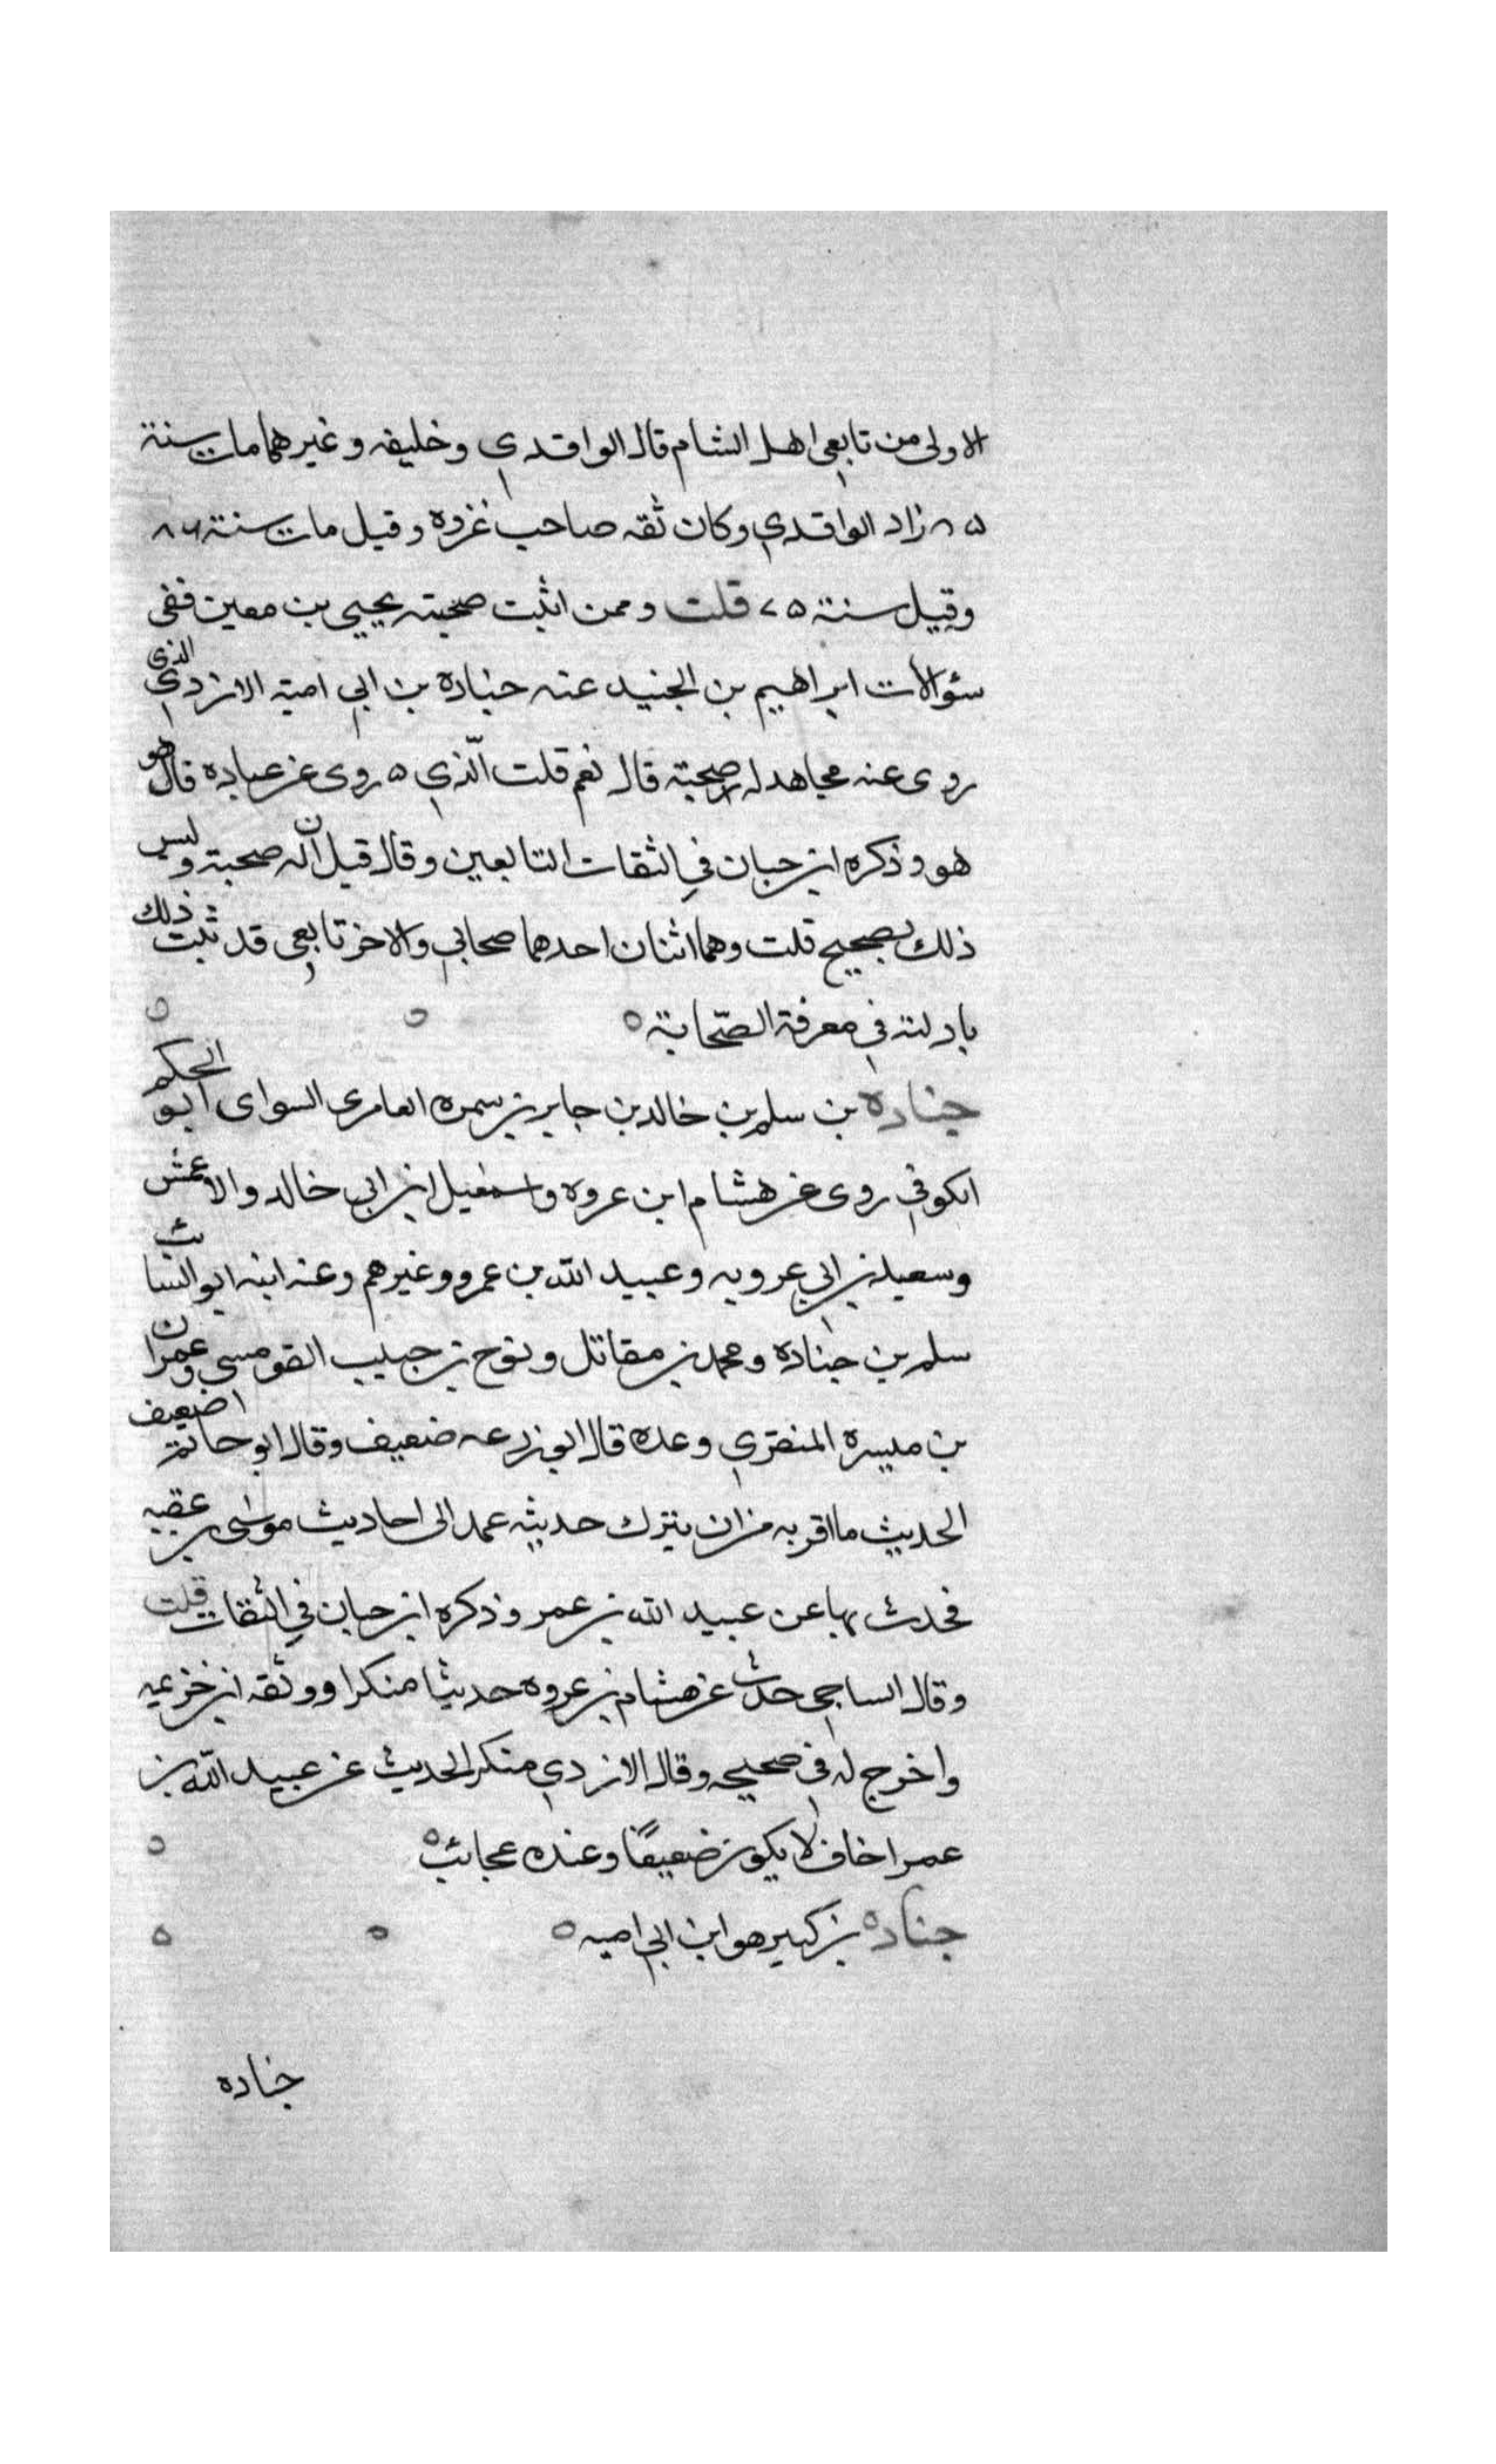 الاولى من تابعي اهل الشام قال الواقدي وخليفه وغيرهما مات سنة
٨٥ زاد الواقدي وكان ثقه صاحب غزوه وقيل مات سنة ٨٦
وقيل سنة ٧٥ قلت وممن اثبت صحبته يحيي بن معين ففي
سؤالات ابراهيم بن الجنيد عنه جناده بن ابي امية الازدي الذي
روى عنه مجاهد له صحبة قال نعم قلت الّذي ٥ روى عن عباده قال هو
هو وذكره ابن حبان في الثقات التابعين وقال قيل ان له صحبة وليس
ذلك بصحيح قلت وهما اثنان احدهما صحابي والاخر تابعي قد ثبت ذلك
بادلته في معرفة الصّحابة ه
جناده بن سلم بن خالد بن جابر بن سمره العامري السواى ابو الحكم
الكوفي روى عن هشام ابن عروه واسمعيل ابن ابي خالد والاعمش
وسعيد بن ابي عروبه وعبيد الله بن عمرو وغيرهم وعنه ابنه ابو السائب
سلم بن جناده ومحمد بن مقاتل ونوح بن حبيب القومسي وعمران
بن ميسرة المنقري وعده قال ابو زرعه ضعيف وقال ابو حاتم ضعيف
الحديث ما اقربه من ان يترك حديثه عمد الى احاديث موسى بن عقبه
فحدث بها عن عبيد الله بن عمر وذكره ابن حبان في الثقات قلت
وقال الساجي حدث عن هشام بن عروه حديثا منكرا ووثقه ابن خزيمه
واخرج له في صحيحه وقال الازدي منكر الحديث عن عبيد الله بن
عمر اخاف لا يكون ضعيفًا وعنده عجائب ه
جناده بن كبير هو ابن ابي اميه ه
جناده